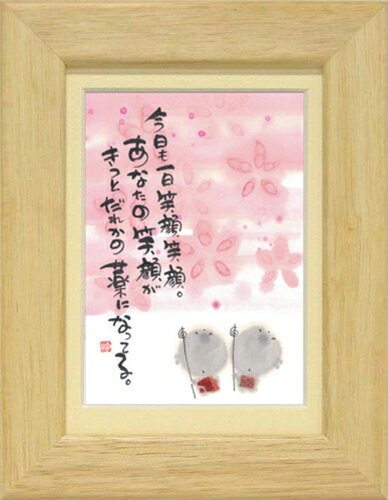 今日も一日笑顔笑顔。
あなたの笑顔が
きっとだれかの薬に
なってる。